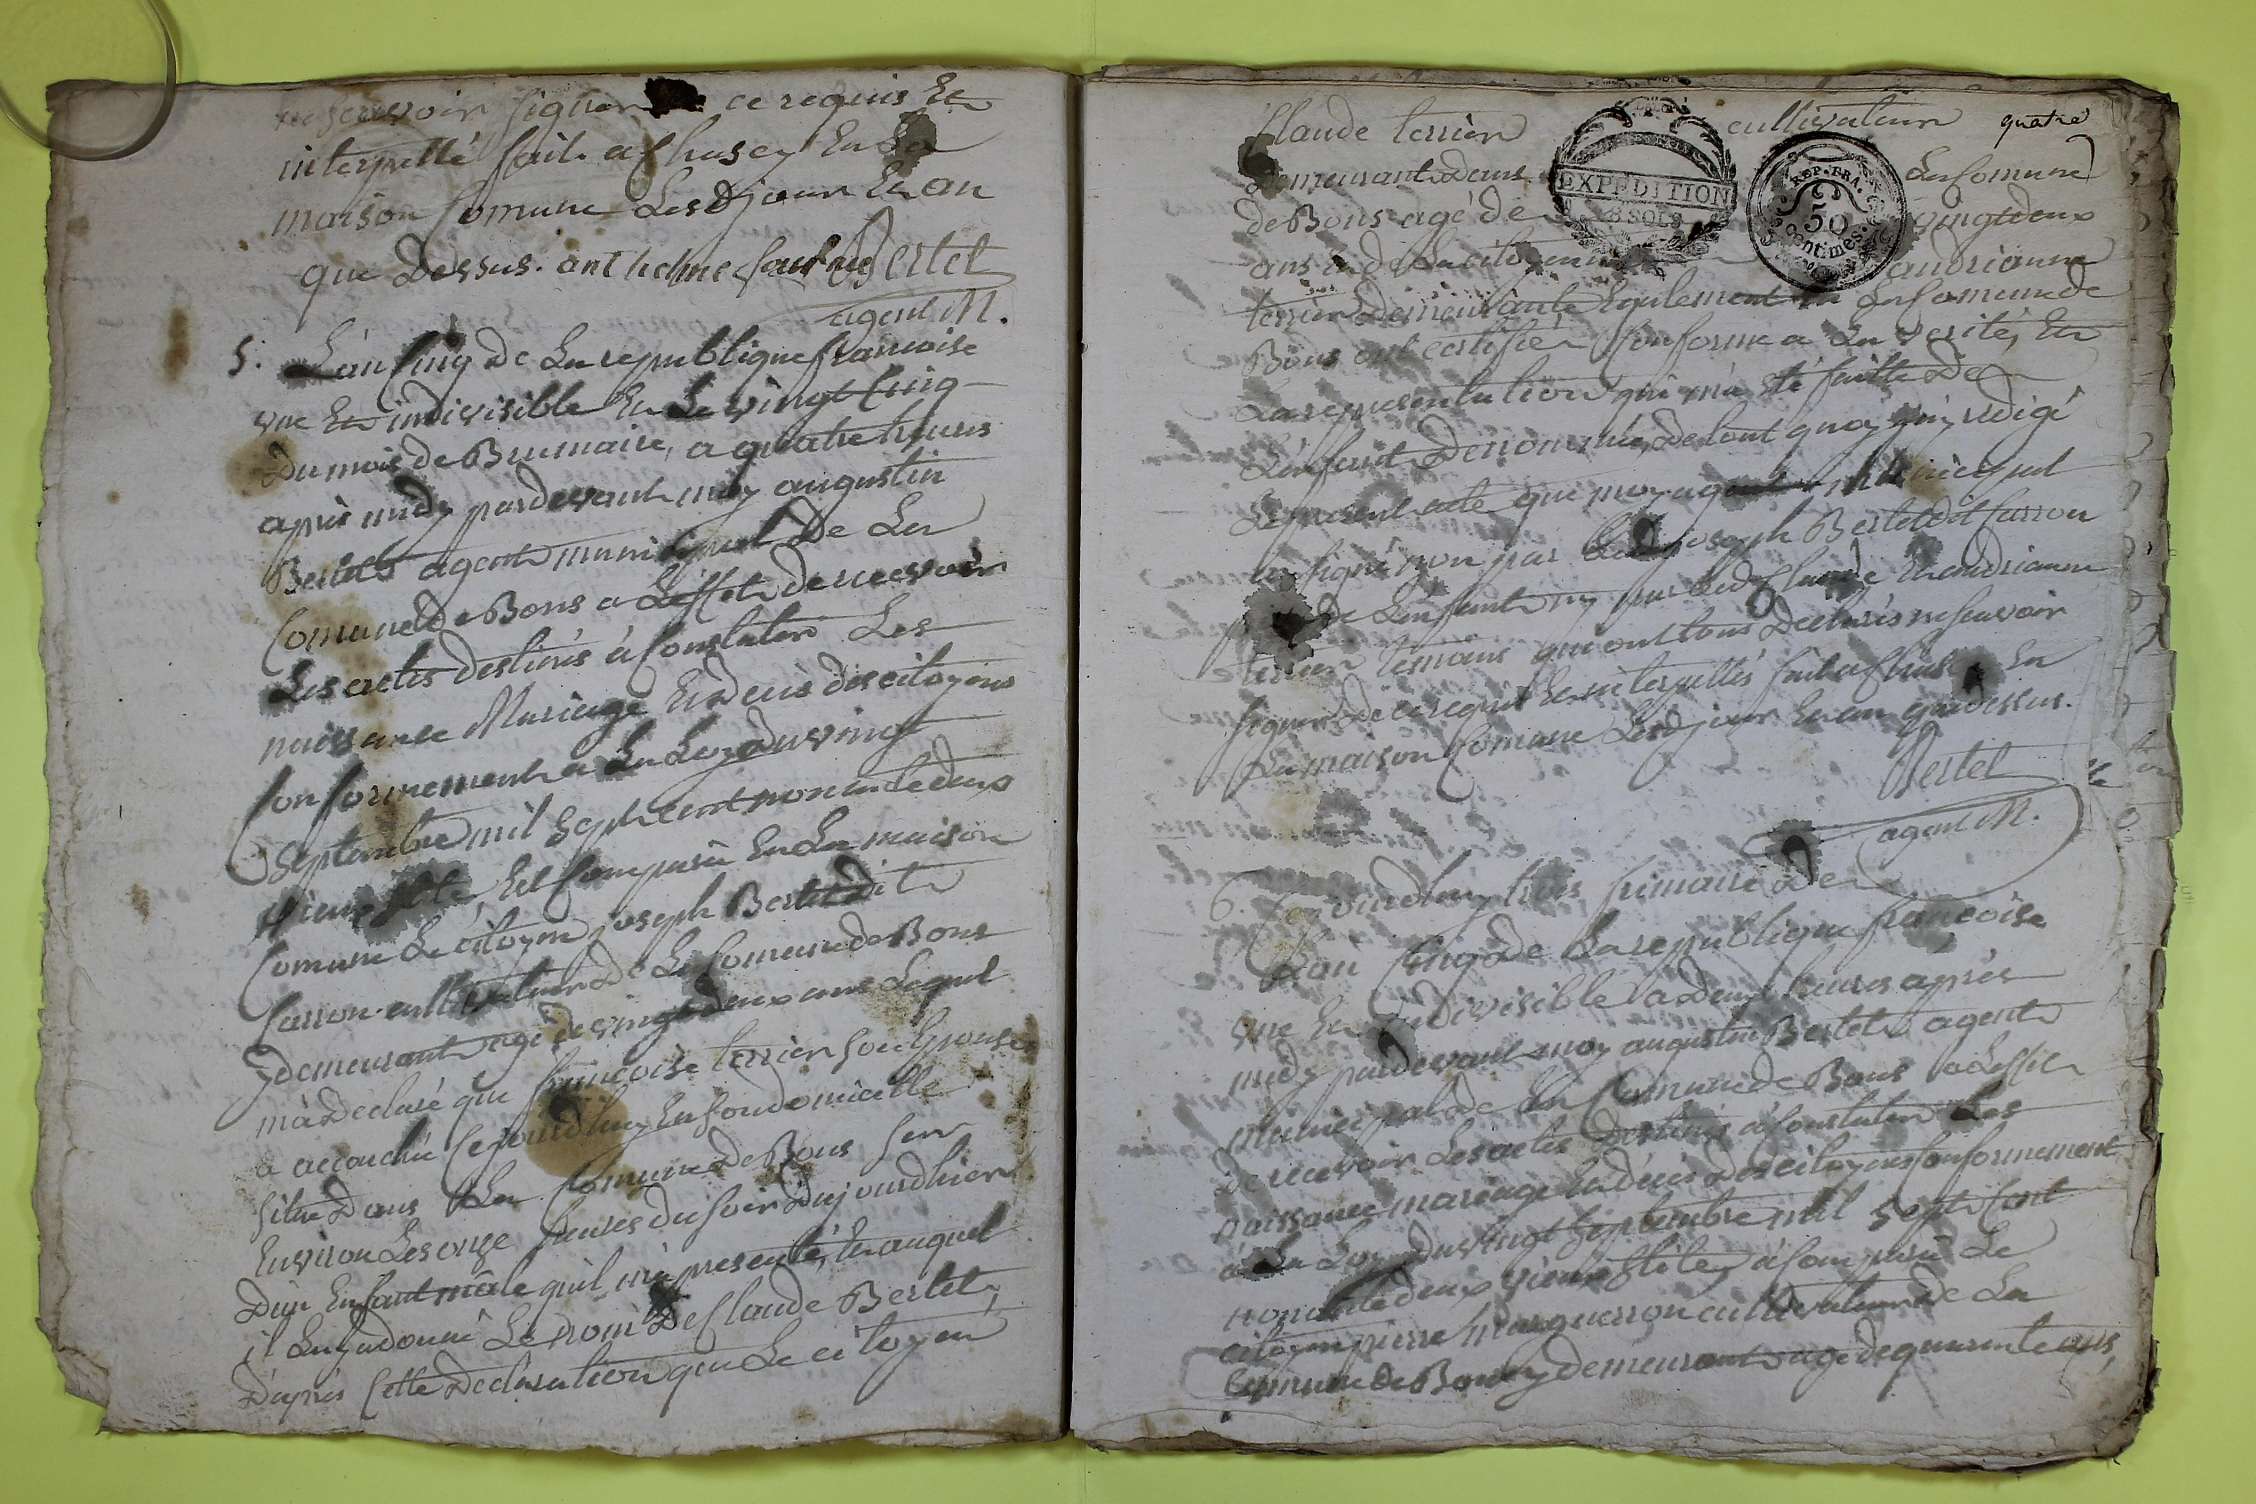 ne scavoir signer ce requis Et
interpellé fait a Chusey En La
maison Comune Lesd jour Et an
que Dessus. anthelme Bertet
agent M.
5. L'an Cinq De La republique francoise
vne Et indivisible Et Le vingt Cinq
Du mois de Brumaire, a quatre heures
après midy pardevant moy augustin
Bertet agent municipal De La
Comune De Bons a Leffet de recevoir
Les actes destinés á Constater Les
naissance Mariage Et Decès des citoyens
Conformement a La Loy du vingt
Septembre mil Sept cent nonante deux
vieux stile, Est Comparu En La maison
Comune Le citoyen joseph Bertet dit
Carron cultivateur De La Comune de Bons
y demeurant agé de vingt deux ans Lequel
m'a Declaré que francoise terrier son Epouse
a accouché Cejourdhuy En son domicille
situé Dans La Comune De Bons sur
Environ Les onze heures du soir Dujourdhier
D'un Enfant mâle qu'il m'a presenté, Et auquel
il Luy a donné Le nom De Claude Bertet,
D'aprés Cette Declaration que Le citoyen
quatre
Claude terrier cultivateur
Demeurant Dans La Comune
de Bons agé de vingt deux
ans Et de La citoyenne andrianne
terrier Demeurante Egalement En La Comune de
Bons ont certifiér Conforme a La verité, Et
La representation qui m'a Eté faitte De
L'enfant Denommé, De tout quoy j'ay redigé
Le present acte que moy agent municipal
ay signé non par Led joseph Bertet dit Carron
pere De L'enfant ny par Led Claude Et andrianne
terrier temoins qui ont tous Declarés ne scavoir
signer De ce requis Et interpellés fait a Chusey En
La maison Comune Lesd jour Et an que dessus.
Bertet
agent M.
6. Cejourdhuy trois frimaire De
L'an Cinq De La republique francoise
vne Et indivisible a Deux heures après
midy pardevant moy augustin Bertet agent
municipal De La Comune de Bons a Leffet
De recevoir Les actes Destinés á Constater Les
naissance mariage Et décès Des citoyens Conformement
á La Loy Du vingt Septembre mil Sept Cent
nonante deux vieux stile, á Comparu Le
citoyen pierre Marguerron cultivateur De La
Comune De Bons y demeurant agé de quarente ans,
EXPEDITION
8 SOLS
REP. FRA.
50
centimes.